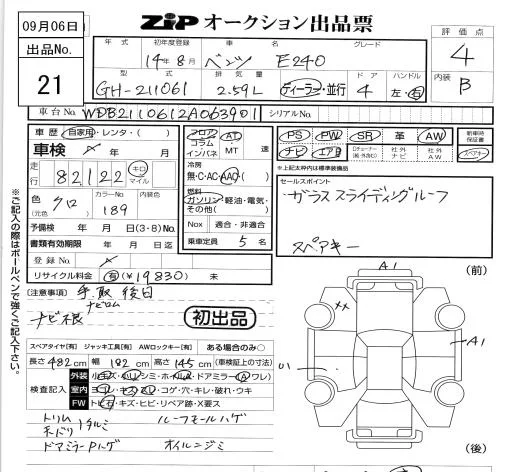 09月06日
ZIP オークション出品票
出品No.
21
年式 初年度登録 車名 グレード
14年8月 ベンツ E240
評価点
4
型式 排気量 ドア ハンドル
GH-211061 2.59L ディーラー・並行 4 左・右
内装
B
車台No. WDB2110612A063901 シリアルNo.
車歴 自家用・レンタ・( )
車検 年 月
走行 82122 キロ マイル
色(元色) クロ カラーNo. 189 内装色
予備検 年 月 日(3・8)No.
書類有効期限 年 月 日
登録No.
リサイクル料金 有(¥19830) 未
フロア コラム インパネ AT MT 速
冷房
無・C・AC・AAC
燃料
ガソリン・軽油・電気・その他( )
Nox 適合・非適合
乗車定員 5 名
PS PW SR 革 AW
ナビ エアB 社外ナビ 社外AW
新車時保証書
スペアキー
※上記太枠内は標準装備品
セールスポイント
ガラススライディングルーフ
スペアキー
※ご記入の際はボールペンで強くご記入下さい。
(注意事項) 手取後日
ナビロム
ナビ根
初出品
スペアタイヤ[有] ジャッキ工具[有] AWロックキー[有] ある場合のみ○
長さ 482 cm 幅 182 cm 高さ 145 cm (車検証上の寸法)
検査記入
外装
室内
FW トビ石・キズ・ヒビ・リペア跡・X要ス
トリム
天ドリ タルミ
ルーフモールハゲ
ドアミラーPハゲ オイルニジミ
(前)
A1
XX
A1
U1
(後)